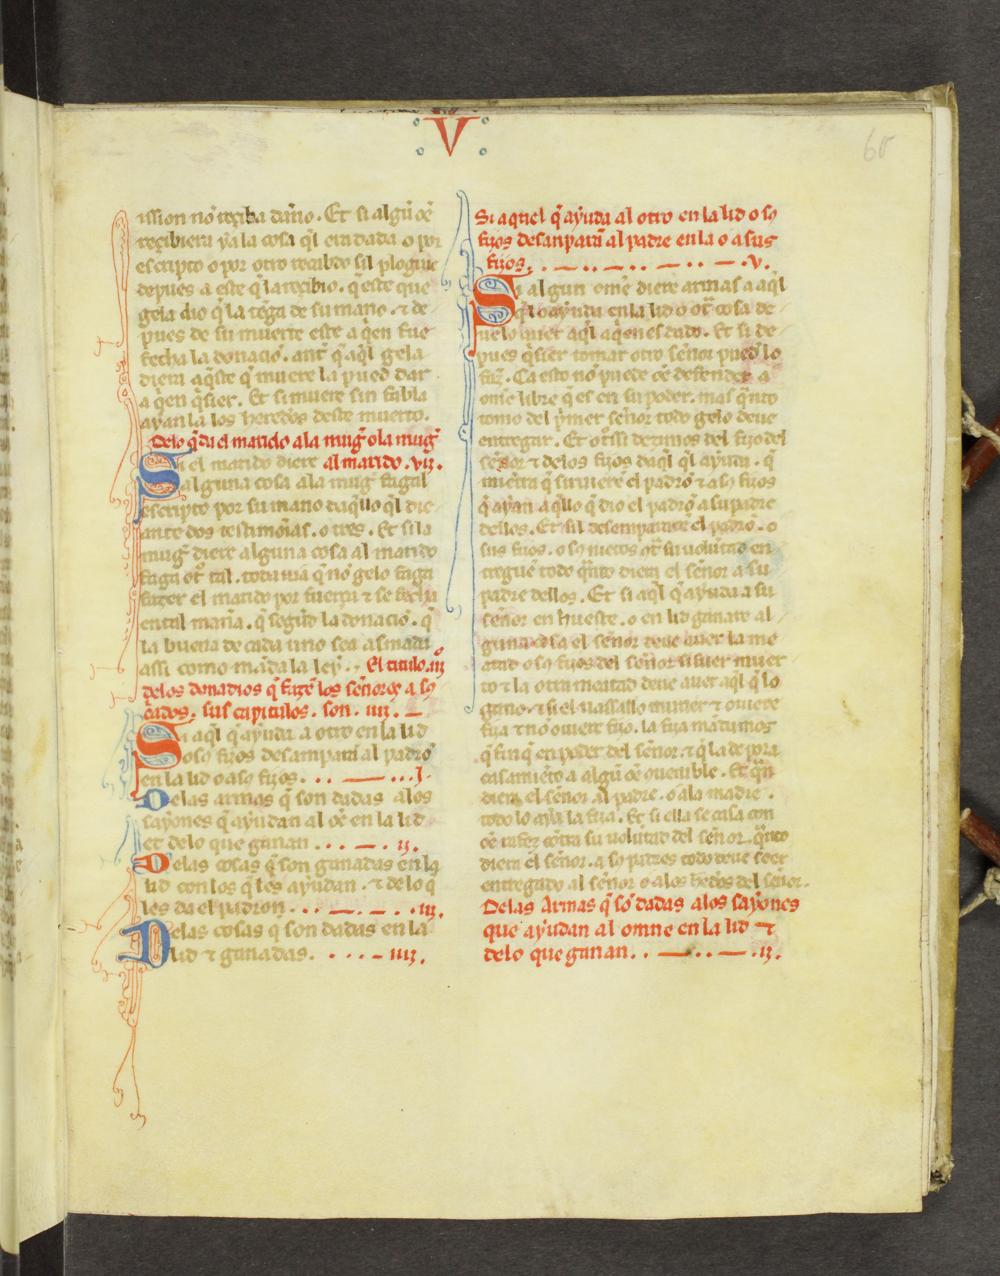 V
60
ission no reçiba daño. Et si algũ oẽ
reçibiera ya la cosa q̃l era dada o por
escripto o por otro reçibdo sil plogue
depues a este q̃ la reçibio. q̃ este que
gela dio q̃ la tẽga de su mano. ⁊ de
pues de su muerte este a q̃en fue
fecha la donaciõ. ant̃ q̃ aq̃l gela
diera aq̃ste q̃ muere la pued dar
a q̃en q̃sier. Et si muere sin fabla
ayan la los heredos deste muerto.
Delo q̃ da el marido ala mug̃ o la mug̃
Si el marido diere al marido. vij.
alguna cosa ala mug̃ fagal
escripto por su mano daq̃llo q̃l die
ante dos testimonias. o tres. Et si la
mug̃ diere alguna cosa al marido
faga ot̃ tal. toda uia q̃ no gelo faga
fazer el marido por fuerça ⁊ se fecha
en tal mañа. q̃ segũd la donaciõ. q̃
la buena de cada uno sea asmada
assi como mãda la ley. El titulo. iij
delos donadios q̃ fazẽ los señores a sꝯ
sus capitulos. son. iiij.
Si aq̃l q̃ ayuda a otro en la lid
o sos fijos desampara al padrõ
en la lid o a so fijos. . . . — . . . j.
Delas armas q̃ son dadas alos
sayones q̃ ayudan al oẽ en la lid
et delo que ganan . . . — . . ij.
Delas cosas q̃ son ganadas en la
lid con los q̃ les ayudan. ⁊ de lo q̃
les da el padron. . . — . — . . iij.
Delas cosas q̃ son dadas en la
lid ⁊ ganadas. . . . . — iiij.
Si aquel q̃ ayuda al otro en la lid o sꝯ
fijos desanpara al padre en la o a sus
fijos. . — . . — . . — . . — . v.
Si algun om̃e diere armas a aq̃l
q̃l ayuda en la lid o ot̃ cosa de
uelo auer aq̃l a q̃en es dado. Et si de
pues q̃sier tomar otro señor pued lo
faz̃. Ca esto no puede oẽ defender a
om̃e libre q̃ es en su poder. mas q̃nto
tomo del p̃mer señor todo gelo deue
entregar. Et ot̃ssi dezimos del fijo del
señor ⁊ delos fijos daq̃l q̃l ayuda. q̃
mientra q̃ siruiere el padrõ ⁊ a sꝯ fijos
q̃ ayan aq̃llo q̃ dio el padrõ a su padre
dellos. Et sil desemparare el padrõ. o
sus fijos. o sꝯ nietos ot̃ su volũtad en
tregue todo q̃nto diera el señor a su
padre dellos. Et si aq̃l q̃ ayuda a su
señor en hueste. o en lid ganare al
guna cosa el señor deue auer la me
atad o sꝯ fijos del señor si fuer muer
to ⁊ la otra meatad deue auer aq̃l q̃ lo
gano. ⁊ si el uassallo muriere ⁊ ouiere
fija ⁊ no ouiere fijo. la fija mãdamos
q̃ finq̃ en poder del señor. ⁊ q̃ la de pora
casamiẽto a algũ oẽ ouenible. Et q̃n
diera el señor al padre. o ala madre.
todo lo aya la fija. Et si ella se casa con
oẽ rafez cõtra su volũtad del señor. q̃nto
diera el señor. a sꝯ padres todo deue seer
entregado al señor o alos heredos del señor.
Delas Armas q̃ sõ dadas alos sayones
que ayudan al omne en la lid ⁊
delo que ganan. . — . . — . ij.